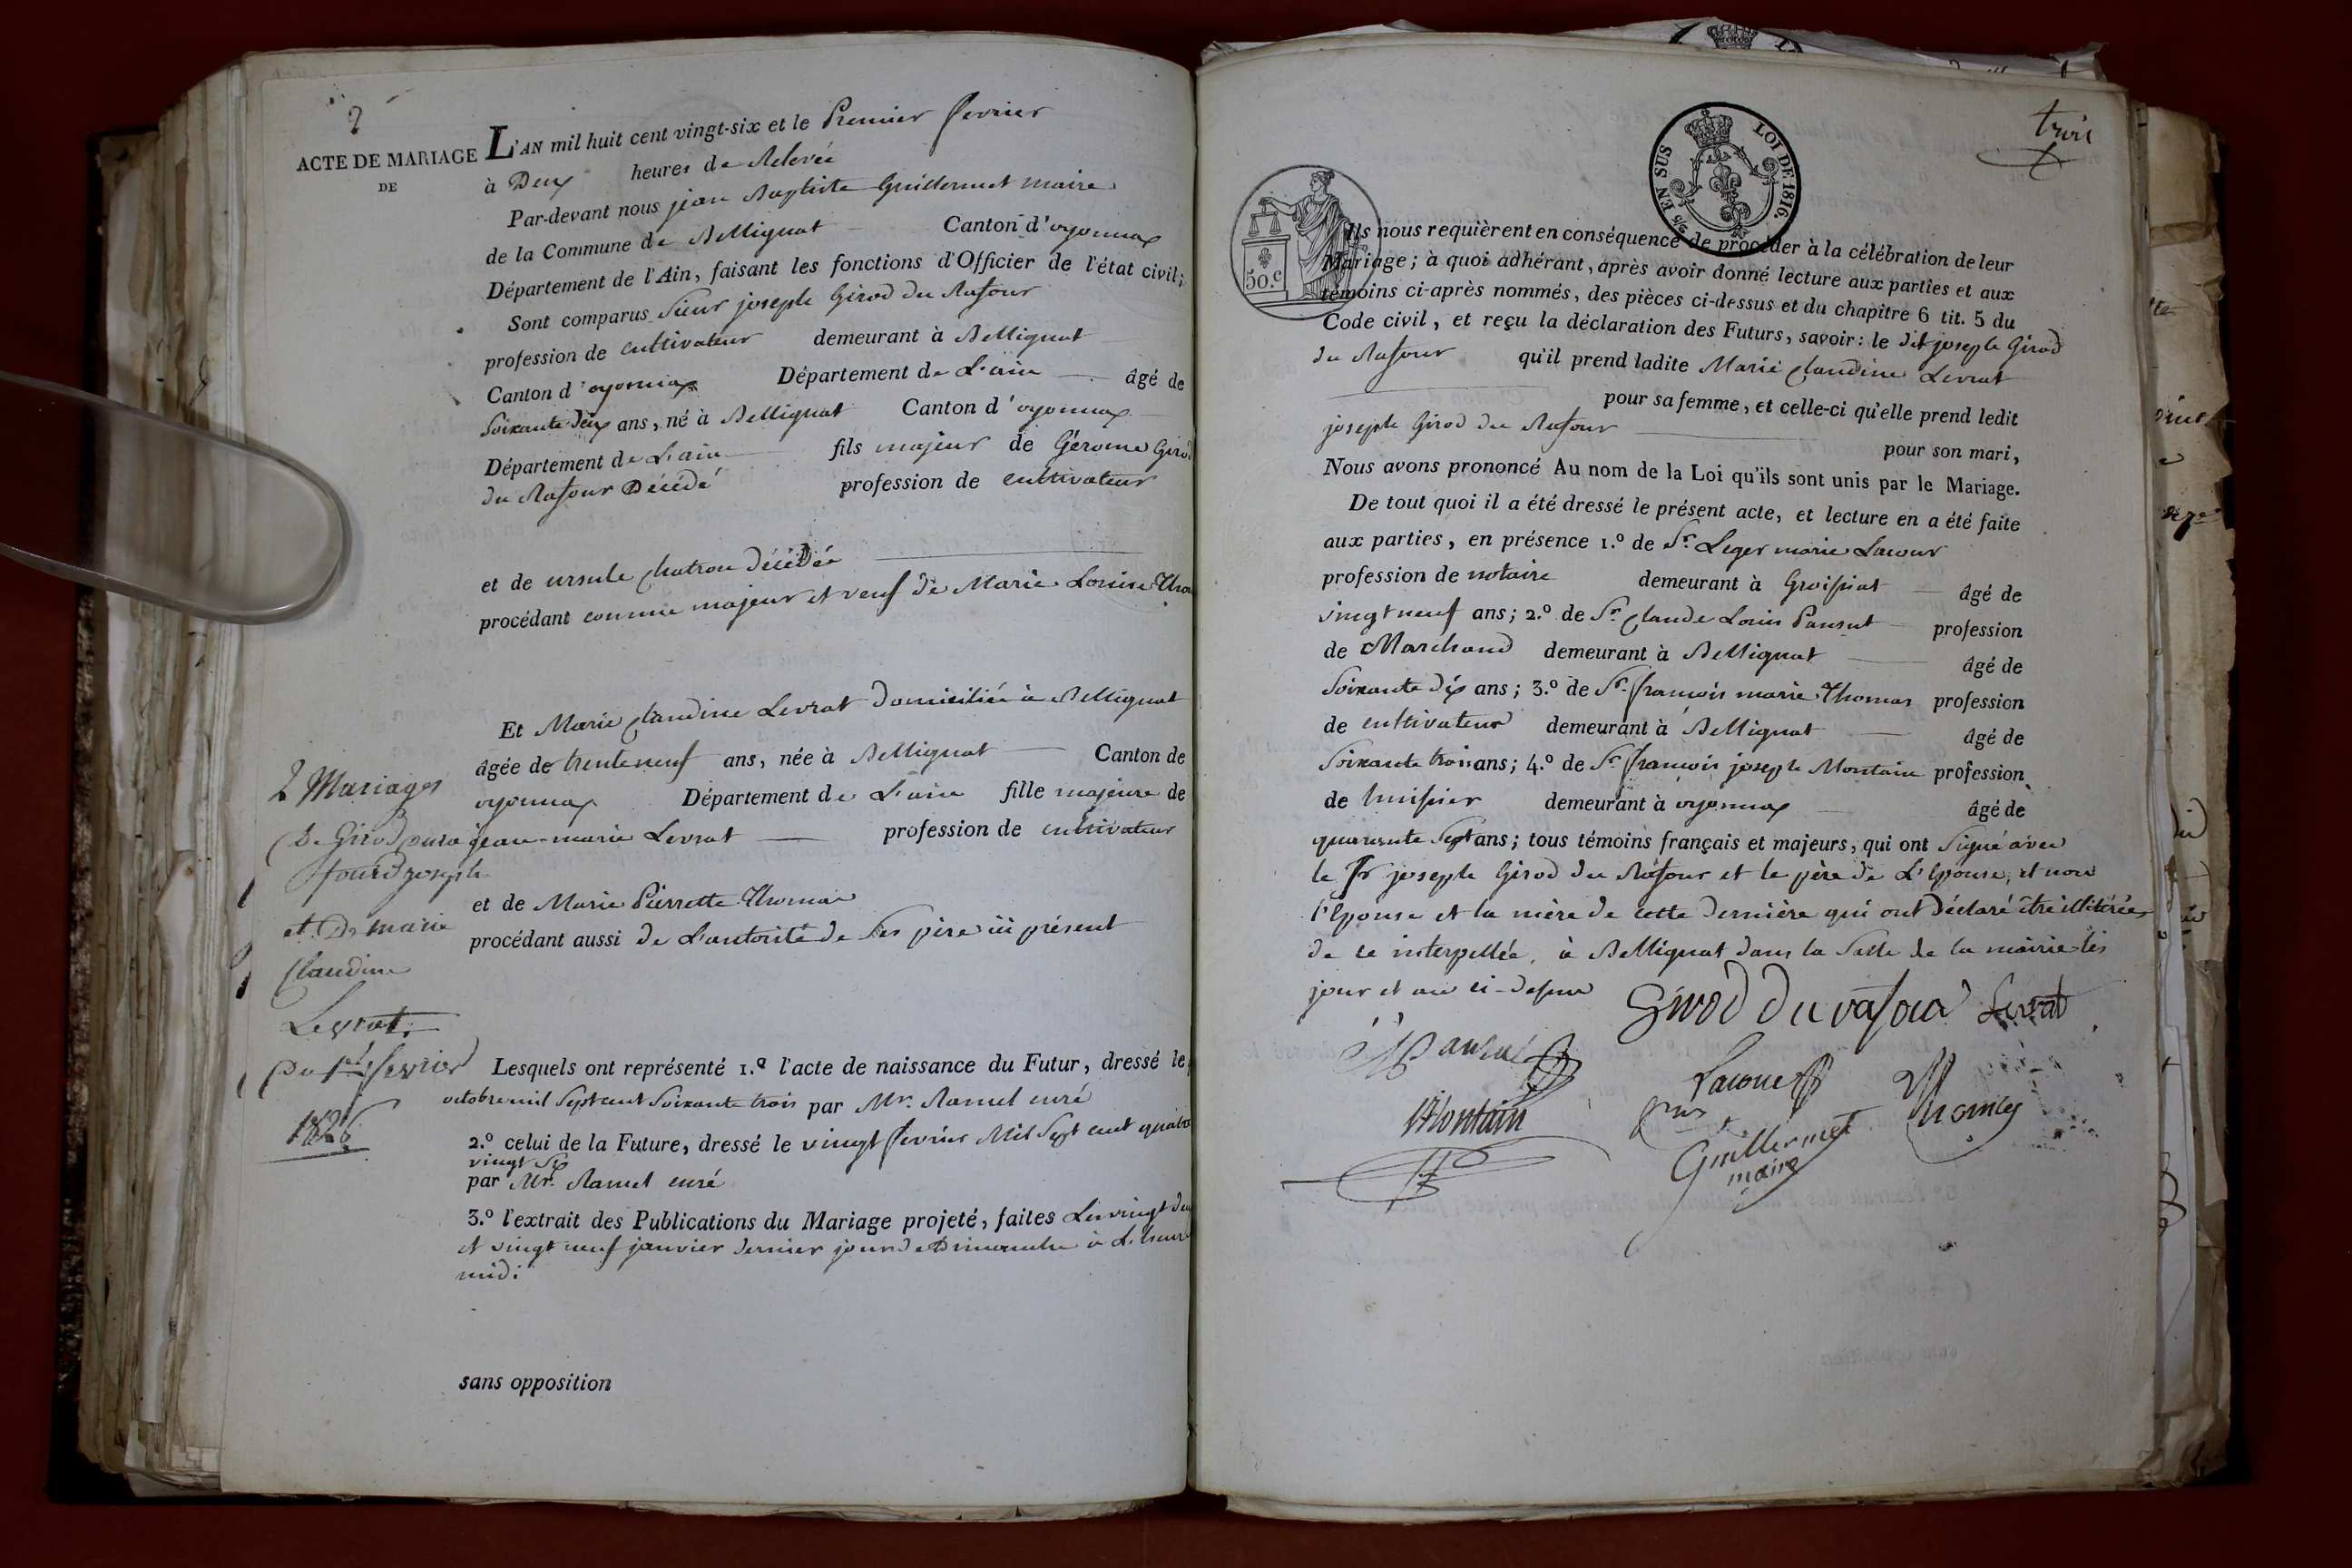 2
ACTE DE MARIAGE
DE
L'AN mil huit cent vingt-six et le Premier fevrier
à Deux heures de Relevée
Par-devant nous jean Baptiste Guillermet maire
de la Commune de Bellignat Canton d'oyonnax
Département de l'Ain, faisant les fonctions d'Officier de l'état civil;
Sont comparus Sieur joseph Girod du Rafour
profession de cultivateur demeurant à Bellignat
Canton d'oyonnax Département de L'ain âgé de
Soixante deux ans, né à Bellignat Canton d'oyonnax
Département de L'ain fils majeur de Gérome Girod
du Rafour Décédé profession de cultivateur
et de ursule chatron décédée
procédant comme majeur et veuf de Marie Louise Tho
Et Marie claudine Levrat domiciliée à Bellignat
âgée de trente neuf ans, née à Bellignat Canton de
oyonnax Département de L'ain fille majeure de
jean-marie Levrat profession de cultivateur
et de Marie Pierrette Thomas
procédant aussi de L'autorité de Ses père ici présent
2 Mariages
De Girod dura
four joseph
et De marie
Claudine
Levrat.
Du 1er fevrier
1826
Lesquels ont représenté 1.º l'acte de naissance du Futur, dressé le
octobre mil Sept cent Soixante trois par Mr. Ramel curé
2.º celui de la Future, dressé le vingt fevrier Mil Sept cent quatre
vingt Six
par Mr. Ramel curé
3.º l'extrait des Publications du Mariage projeté, faites Les vingt deux
et vingt neuf janvier dernier jour de Dimanche à L'heure
midi
sans opposition
trois
5/10 EN SUS
LOI DE 1816.
50.c
Ils nous requièrent en conséquence de procéder à la célébration de leur
Mariage; à quoi adhérant, après avoir donné lecture aux parties et aux
témoins ci-après nommés, des pièces ci-dessus et du chapitre 6 tit. 5 du
Code civil, et reçu la déclaration des Futurs, savoir: le dit joseph Girod
du Rafour qu'il prend ladite Marie claudine Levrat
pour sa femme, et celle-ci qu'elle prend ledit
joseph Girod du Rafour pour son mari,
Nous avons prononcé Au nom de la Loi qu'ils sont unis par le Mariage.
De tout quoi il a été dressé le présent acte, et lecture en a été faite
aux parties, en présence 1.º de Sr. Leger marie Lacour
profession de notaire demeurant à Groissiat âgé de
vingt neuf ans; 2.º de Sr. claude Louis Pansut profession
de Marchand demeurant à Bellignat âgé de
Soixante dix ans; 3.º de Sr. françois marie Thomas profession
de cultivateur demeurant à Bellignat âgé de
Soixante trois ans; 4.º de Sr. françois joseph Montain profession
de huissier demeurant à oyonnax âgé de
quarante Sept ans; tous témoins français et majeurs, qui ont Signé avec
le Sr joseph Girod du Rafour et le père de L'épouse, et non
l'épouse et la mère de cette dernière qui ont Déclaré être illitérées
de ce interpellée, à Bellignat dans la Salle de la mairie les
jour et an ci-dessus
Girod du rafour Levrat
Pansut
Lacour
Thomas
Montain
Guillermet
maire